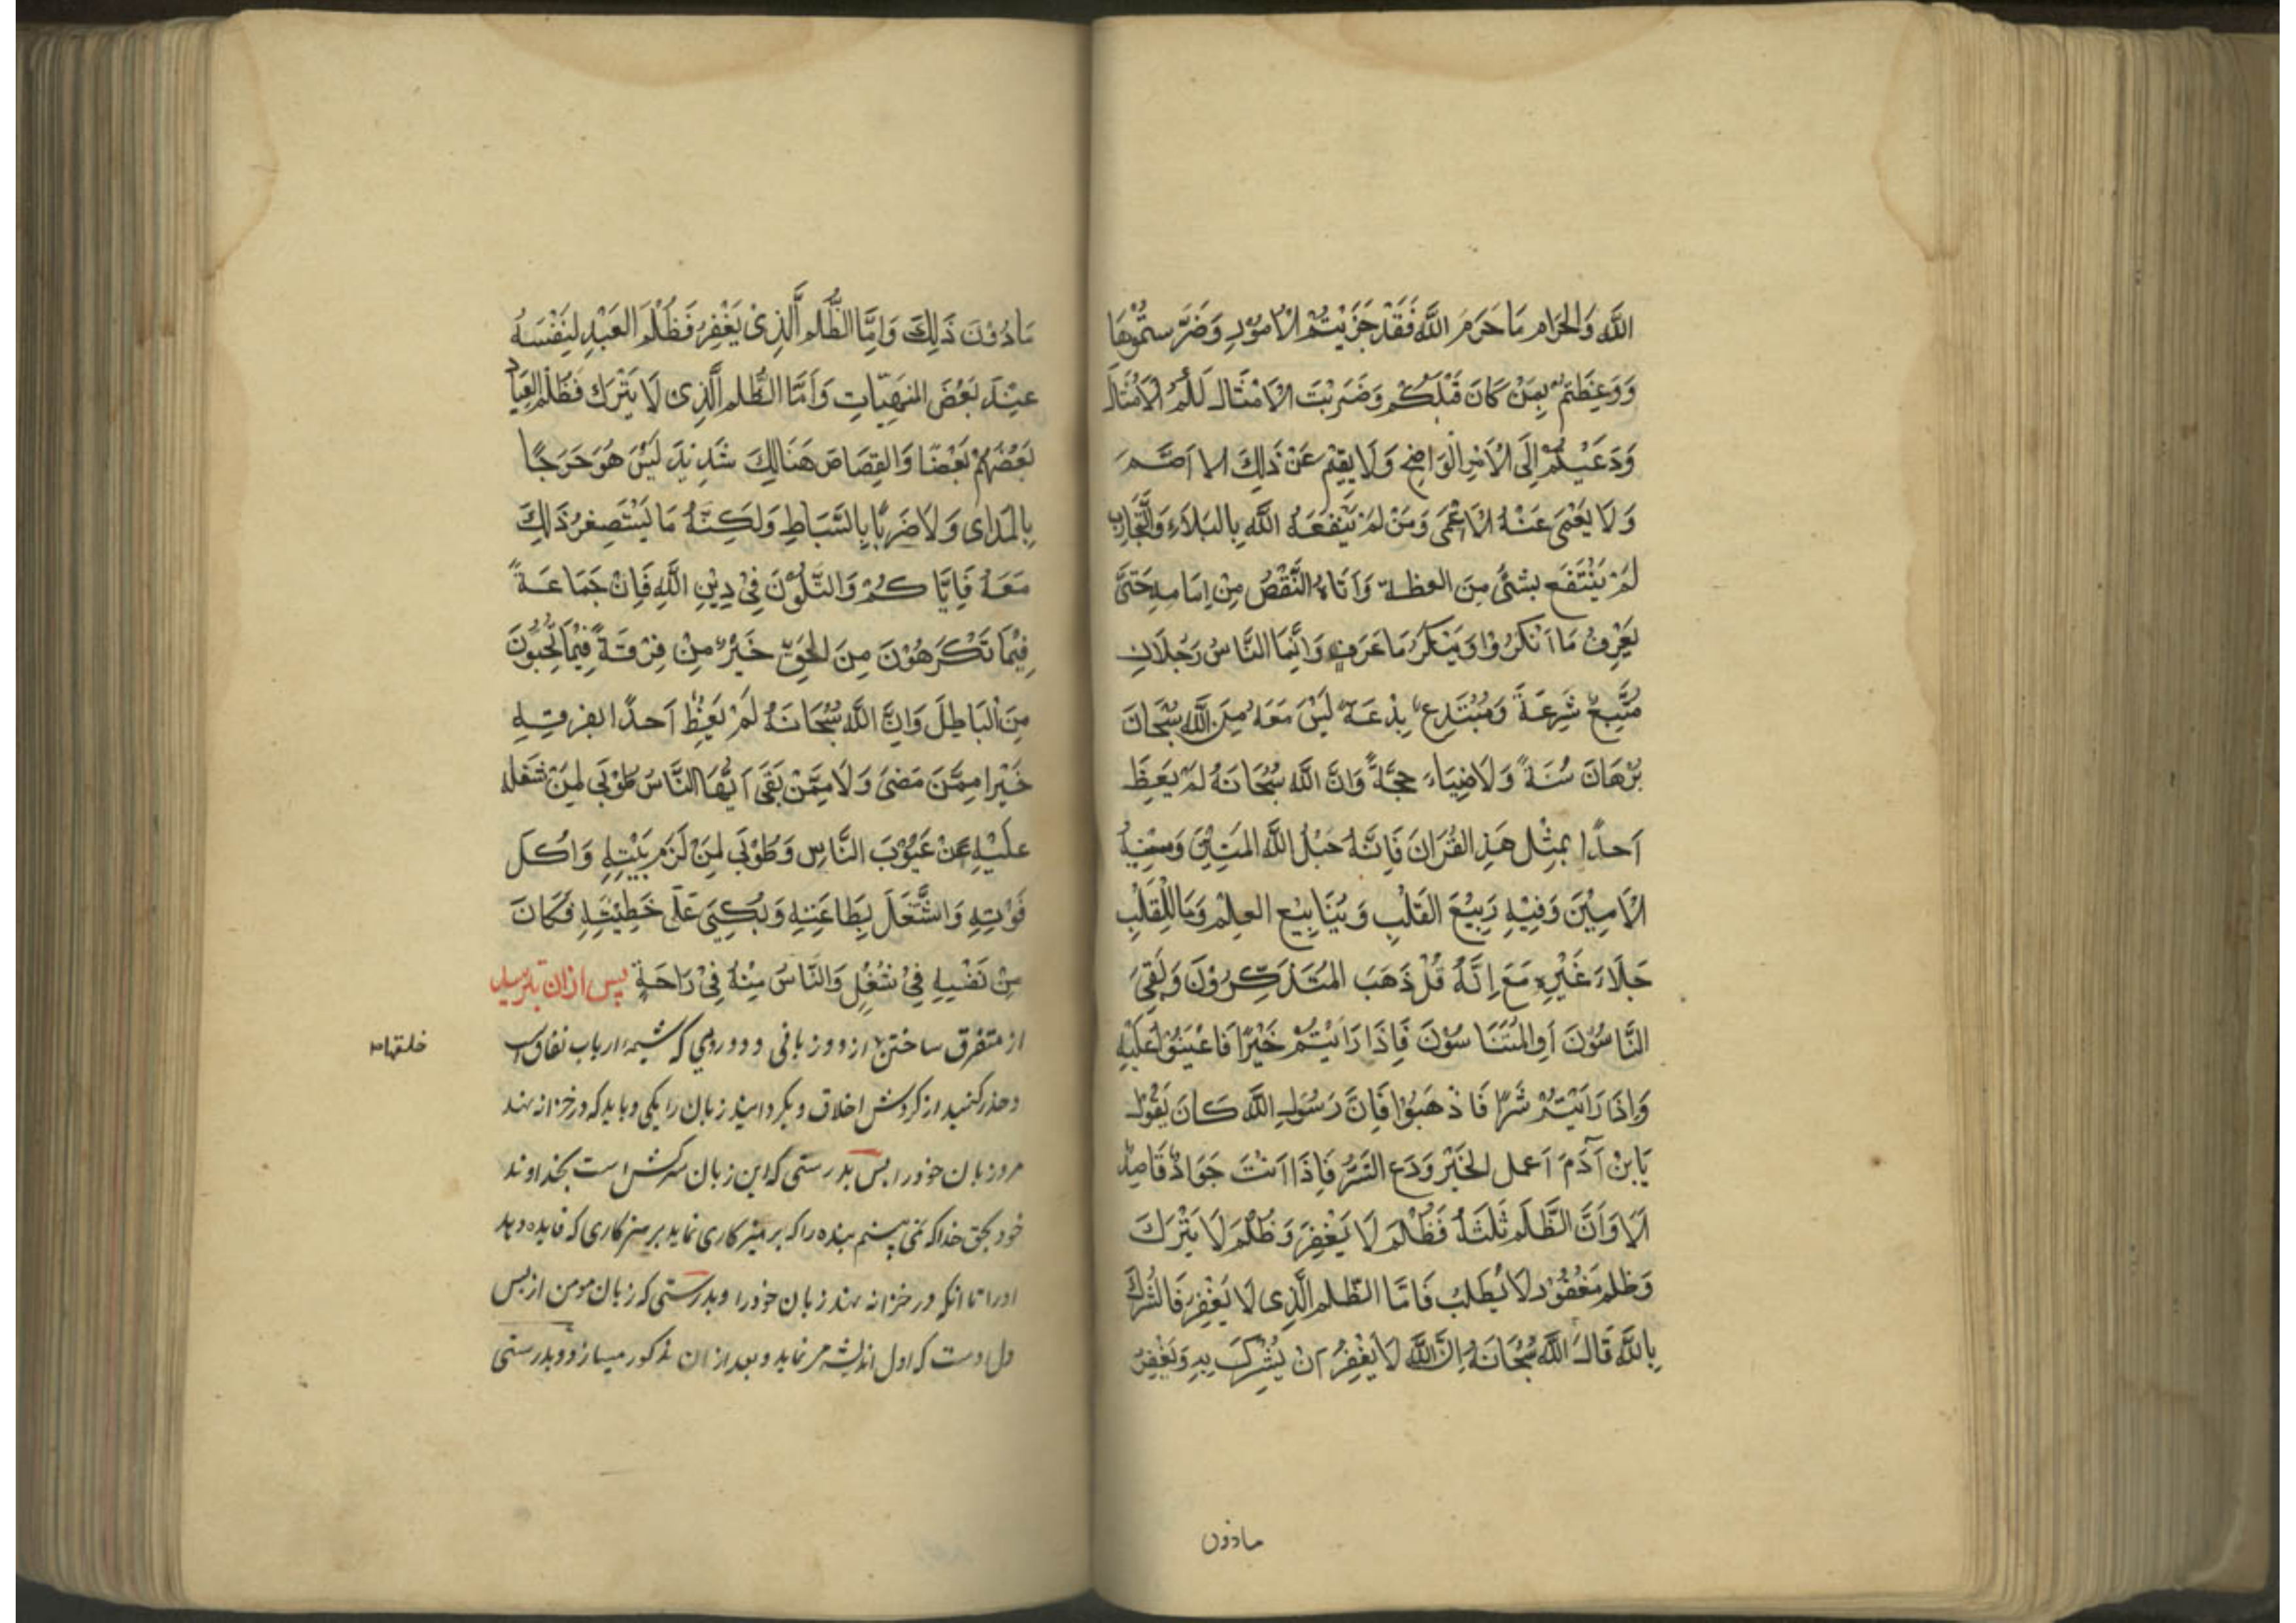 الله وَالحَرَام مَا حَرَمَ اللَّه فَقَدْ جَرَيْتُمُ الْاُمُوْرِ وَضَرَّسْتُمُوْهَا
وَوَعِظْتُمْ بِمَنْ كَانَ قَبْلَكُمْ وَضَرَبْتَ الْاَمْثَالَ لَكُمْ الْاَمْثَالَ
وَدَعَيْتُمْ اِلَى الْاَمْرِ الْوَاضِحِ وَلَا يَقِيْمُ عَنْ ذَلِكَ الا اَصَمَّ
وَلَا يَعْمَى عَنْهُ الْاَعْمَى وَمَنْ لَمْ يَنْفَعَهُ اللَّهِ بِالبَلَاءِ وَالتَّجَارِبِ
لَمْ يَنْتَفَعِ بِشَئٍ مِنَ العِظة وَاَتَاهُ النَّقْصُ مِنْ اِمَامِهِ حَتَّى
يَعْرِفُ مَا اَنْكَرُوْا وَيَنْكَرُ مَا عَرَفَ وَاِنَّمَا النَّاسُ رَجُلَانِ
مُتَّبِعٌ شَرِعَةً وَمُبْتَدِعٌ بِدْعَةً لَيْسَ مَعَهُ مِنَ اللَّهِ سُبْحَانَ
بُرْهَانَ سُنَةً وَلَا ضِيَاءَ حجَّةً وَاِنَّ اللَّهَ سُبْحَانَهُ لَمْ يَعِظَ
اَحَدًا بِمِثْلِ هَذِ القُرَانَ فَاِنَّهُ حَبْلُ اللَّهِ المَتِيْنَ وَسَبَبُهُ
الْاَمِيْنَ وَفِيْهِ رَبِيْعَ القَلْبِ وَيَنَابِيْع العِلْمْ وَمَا لِلْقَلْبِ
جَلَاءَ غَيْرِهِ مَعَ اِنَّهُ قُلْ ذَهَبَ المُتَذَكِّرُوْنَ وَبَقِىَ
النَّاسُوْنَ اَوِ المُتَنَاسُوْنَ فَاِذَا رَاَيْتُمْ خَيْرًا فَاعْيَنُوْا عَلَيْهِ
وَاِذَا رَاَيْتُمْ شَرًا فَاذْهَبُوْا فَاِنَّ رَسُولِ اللَّه كَانَ يَقُوْلُ
يَابْنَ آدَمَ اَعمل الخَيْرَ وَدَعِ الشَرُ فَاِذَا اَنْتَ جَوَادٌ قَاصِدٌ
اَلَا وَاَنَّ الظَّلَمَ ثَلَثَةُ فَظُلْمَ لَا يَغْفِرَ وَظُلْمَ لَا يَتْرَكَ
وَظلم مَغْفُوْر لَا يُطْلَبُ فَاَمَّا الظلم الَّذِى لَا يَغْفِرُ فَالشِّرْكَ
بِاللَّهِ قَالَ اللَّهُ سُبْحَانَهُ اِنَّ اللَّهَ لَا يَغْفِرُ اَنْ يُشْرِكَ بِهِ وَيَغْفِرُ
مادون
مَادُوْنَ ذَلِكَ وَاَمَّا الظُّلم اَلَّذِىْ يَغْفِرُ فَظُلْمَ العَبْدِ لِنَفْسَهُ
عِنْدَ بَعْضَ المنهِيَّاتِ وَاَمَّا الظُّلم الَّذِى لَا يَتْرَك فَظُلْم العِبَاد
بَعْضُهُمْ بَعْضًا وَالقِصَاصَ هَنَالِكَ شَدِيْدَ لَيْسَ هُوَ جَرَجًا
بِالمَدَاى وَلَا ضَربًا بِالسِّيَاطِ وَلَكِنَّهُ مَا يَسْتَصِغرُ ذَلِكَ
مَعَهُ فَاِيَّاكُمْ وَالتَّلَوُّنَ فِىْ دِيْنِ اللَّهِ فَاِنْ جَمَاعَةً
فِيْمَا تَكْرَهُوْنَ مِنَ الحَقِّ خَيْرٌ مِنْ فِرْقَةً فِيْمَا تُحِبُّوْنَ
مِنَ البَاطِلَ وَاِنَّ اللَّه سُبْحَانَهُ لَمْ يَعْظِ اَحدًا بفرقته
خَيْرا مِمَّنَ مَضَىَ وَلَا مِمَّنْ بَقَى اَيُّهَا النَّاسُ طُوْبَى لِمَنْ شَغَله
عَلَيْهِ عَنْ عَيُوْبَ النَّاسِ وَطُوْبَى لِمَنْ لَزَمَ بَيْتِهِ وَاَكَلَ
قَوْتِهِ وَاشْتَغَلَ بِطَاعَتِهِ وَبُكِىَ عَلَى خَطِيْئَتِهِ فَكَانَ
مِنْ نَفْسِهِ فِىْ شُغْلِ وَالنَّاسُ مِنْهُ فِىْ رَاحَةٍ پس از ان بترسید
از متفرق ساختن از دو زبانی و دو رویی که شیمه ارباب نفاق است
خلقهاء
و حذر کنید از کردش اخلاق و بکردانید زبان را یکی و باید که در خزانه نهد
مرد زبان خود را پس بدرستی که این زبان سرکش است بخداوند
خود بحق خدا که نمی بینم بنده را که پرهیزکاری نماید پرهیزکاری که فایده دهد
او را تا انکه در خزانه نهد زبان خود را و بدرستی که زبان مومن از پس
دل اوست که اول اندیشه مر نماید و بعد از ان مذکور میسازد و بدرستی